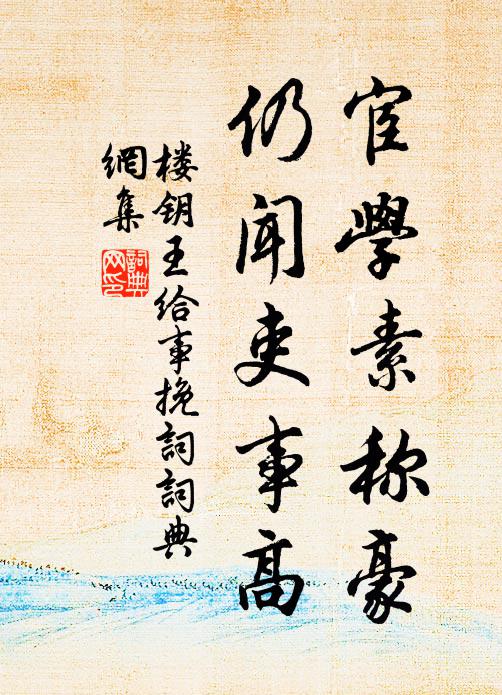 宦學素称豪
仍聞吏事高
楼钥王给事挽詞詞典
網集
詞典
网印